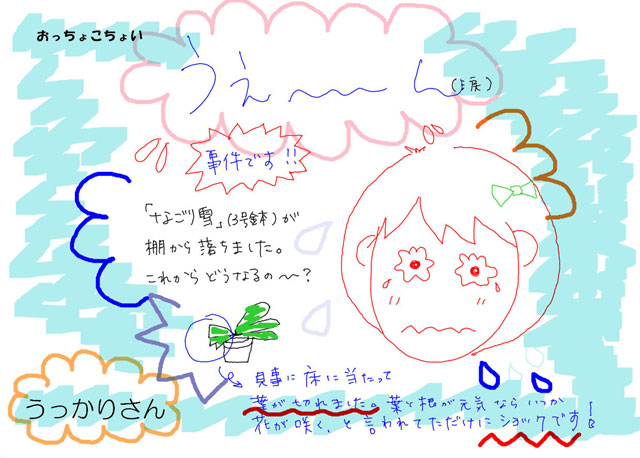 おっちょこちょい
うえ〜〜ん
(涙)
事件です!!
「なごり雪」(3号鉢)が
棚から落ちました。
これからどうなるの〜?
見事に床に当たって
葉が切れました。葉と根が元気ならいつか
花が咲く、と言われてただけにショックです!
うっかりさん